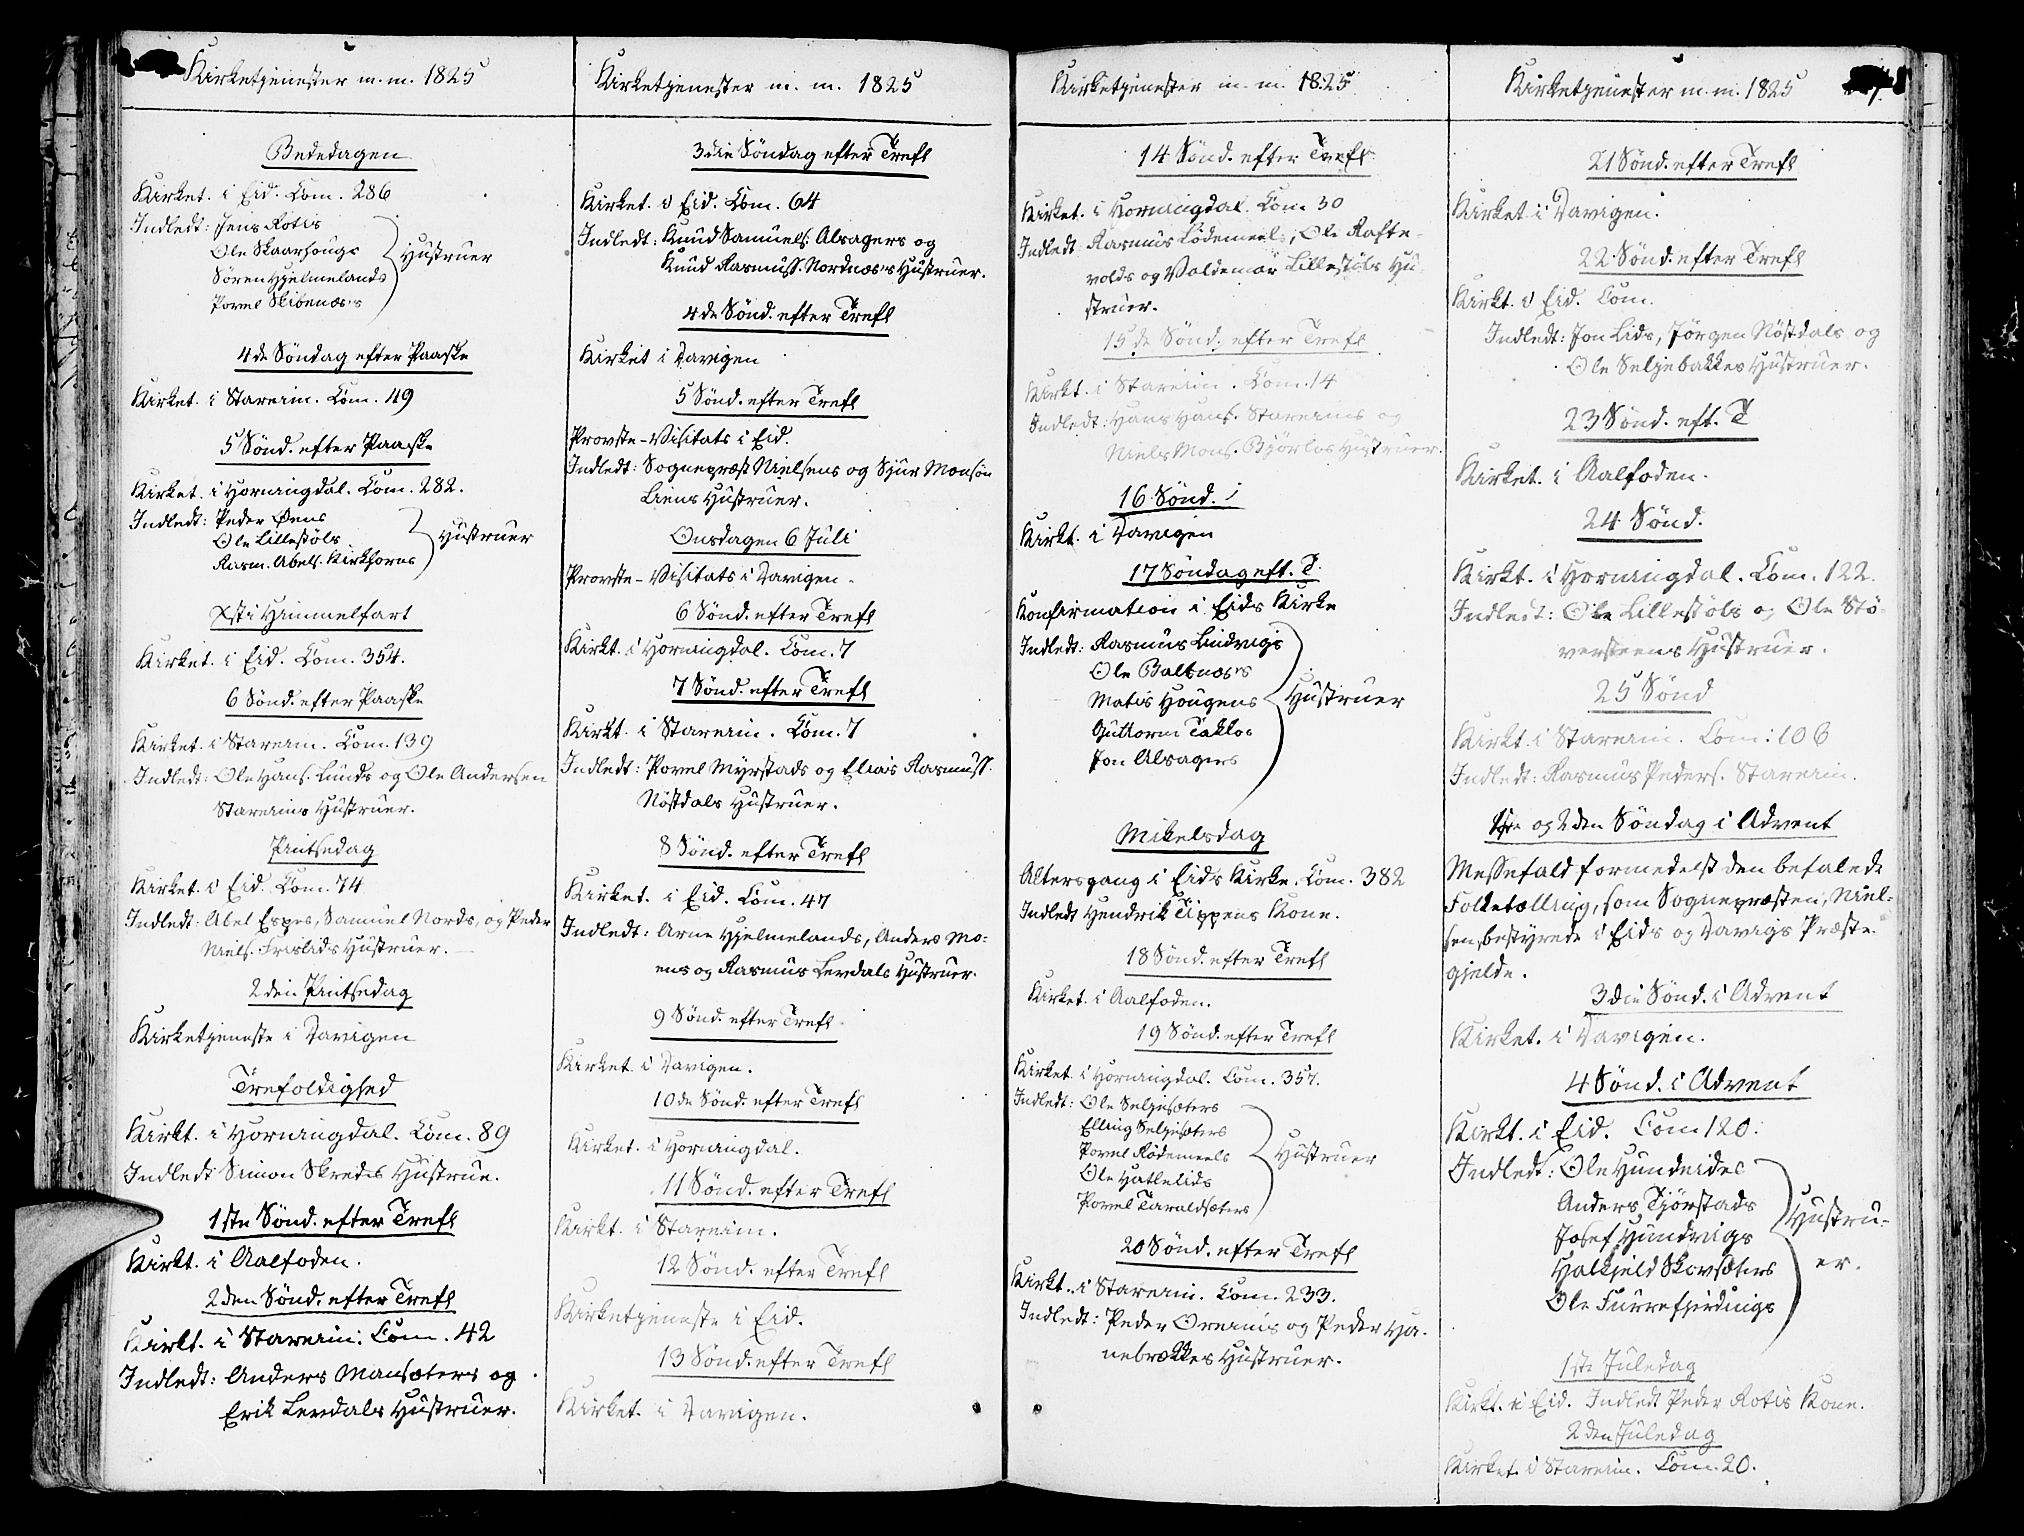 Kirketjenester m. m. 1825
Bededagen
Kirket. i Eid. Com. 286
Indledt: Jens Rotis
Ole Skaarhougs
Sören Hjelmelands
Povel Skibenæs's
Hustruer
4de Söndag efter Paaske
Kirket. i Stareim. Com. 49
5 Sönd. efter Paaske
Kirket. i Horningdal. Com. 282.
Indledt: Peder Öens
Ole Lillestöls
Rasm. Abels. Kirkhorns
Hustruer
Xsti Himmelfart
Kirket. i Eid. Com. 354.
6 Sönd. efter Paaske
Kirket. i Stareim. Com. 139
Indledt: Ole Hans. Lunds og Ole Andersen
Stareims Hustruer.
Pintsedag
Kirket. i Eid. Com. 74
Indledt: Abel Espes, Samuel Nords, og Peder
Niels. Frislids Hustruer.
2den Pintsedag
Kirketjeneste i Davigen
Trefoldighed
Kirkt. i Horningdal. Com. 89
Indledt Simon Skredes Hustrue.
1ste Sönd. efter Trefl
Kirkt. i Aalfoden.
2den Sönd. efter Trefl
Kirkt. i Stareim. Com. 42
Indledt: Anders Mansæters og
Erik Levdals Hustruer.
Kirketjenester m. m. 1825
3die Söndag efter Trefl
Kirket. i Eid. Com. 64
Indledt: Knud Samuels. Alsagers og
Knud Rasmuss. Nordnæs's Hustruer.
4de Sönd. efter Trefl
Kirket i Davigen
5 Sönd. efter Trefl
Provste-Visitats i Eid.
Indledt: Sognepræst Nielsens og Sjur Monsön
Liens Hustruer.
Onsdagen 6 Juli
Provste-Visitats i Davigen.
6 Sönd. efter Trefl
Kirkt. i Horningdal. Com. 7
7 Sönd. efter Trefl
Kirkt. i Stareim. Com. 7
Indledt: Povel Myrstads og Elias Rasmuss.
Nöstdals Hustruer.
8 Sönd. efter Trefl
Kirket. i Eid. Com. 47
Indledt: Arne Hjelmelands, Anders Mo-
ens og Rasmus Levdals Hustruer.
9 Sönd. efter Trefl.
Kirket. i Davigen.
10de Sönd. efter Trefl
Kirket. i Horningdal.
11 Sönd. efter Trefl
Kirkt. i Stareim.
12 Sönd. efter Trefl
Kirketjeneste i Eid.
13 Sönd. efter Trefl
Kirket. i Davigen.
Kirketjenester m. m. 1825
14 Sönd. efter Trefl
Kirket. i Horningdal. Com. 30
Indledt Rasmus Lödemeels, Ole Rafte-
volds og Valdemar Lillestöls Hu-
struer.
15de Sönd. efter Trefl
Kirkt. i Stareim. Com. 14
Indledt: Hans Hans. Stareims og
Niels Mons. Bjørlos Hustruer.
16 Sönd.
Kirkt. i Davigen
17 Söndag eft. T.
Konfirmation i Eids Kirke
Indledt: Rasmus Lindvigs
Ole Baltnæs's
Matis Hougens
Guttorm Taklos
Jon Alsagers
Hustruer
Mikelsdag
Altergang i Eids Kirke. Com. 382
Indledt Hendrik Tippens Kone.
18 Sönd. efter Trefl
Kirket. i Aalfoden.
19 Sönd. efter Trefl
Kirket. i Horningdal. Com. 357.
Indledt: Ole Seljesæters
Elling Seljesæters
Povel Rödemeels
Ole Hatlelids
Povel Taraldsæters
Hustruer
20 Sönd. efter Trefl
Kirkt. i Stareim. Com. 233.
Indledt: Peder Oreims og Peder Ha-
nebrækkes Hustruer.
Kirketjenester m. m. 1825
21 Sönd. efter Trefl
Kirket i Davigen.
22 Sönd. efter Trefl
Kirkt. i Eid. Com.
Indledt: Jon Lids, Jörgen Nöstdals og
Ole Seljebakkes Hustruer.
23 Sönd. eft. T
Kirket. i Aalfoden.
24 Sönd.
Kirkt. i Horningdal. Com. 122.
Indledt: Ole Lillestöls og Ole Stö-
versteens Hustruer.
25 Sönd
Kirkt. i Stareim. Com: 106
Indledt: Rasmus Peders. Stareim.
1ste og 2den Söndag i Advent
Messefald formedelst den befalede
Folketælling, som Sognepræsten, Niel-
sen, bestyrede i Eids og Davigs Præste-
gjelde.
3die Sönd. i Advent
Kirket. i Davigen.
4 Sönd. i Advent
Kirkt. i Eid. Com 120.
Indledt: Ole Hundeides
Anders Tjörstads
Josef Hundvigs
Halkjeld Skovsæters
Ole Furrefjerdings
Hustru-
er.
1ste Juledag
Kirkt. i Eid. Indledt Peder Rotis Kone.
2den Juledag
Kirket. i Stareim. Com. 20.